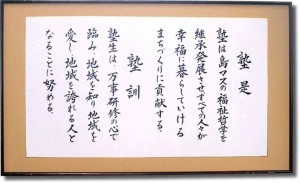 塾是
塾は島マスの福祉哲学を
継承発展させすべての人々が
幸福に暮らしていける
まちづくりに貢献する。
塾訓
塾生は、万事研修の心で
臨み、地域を知り地域を
愛し、地域を誇れる人と
なることに努める。